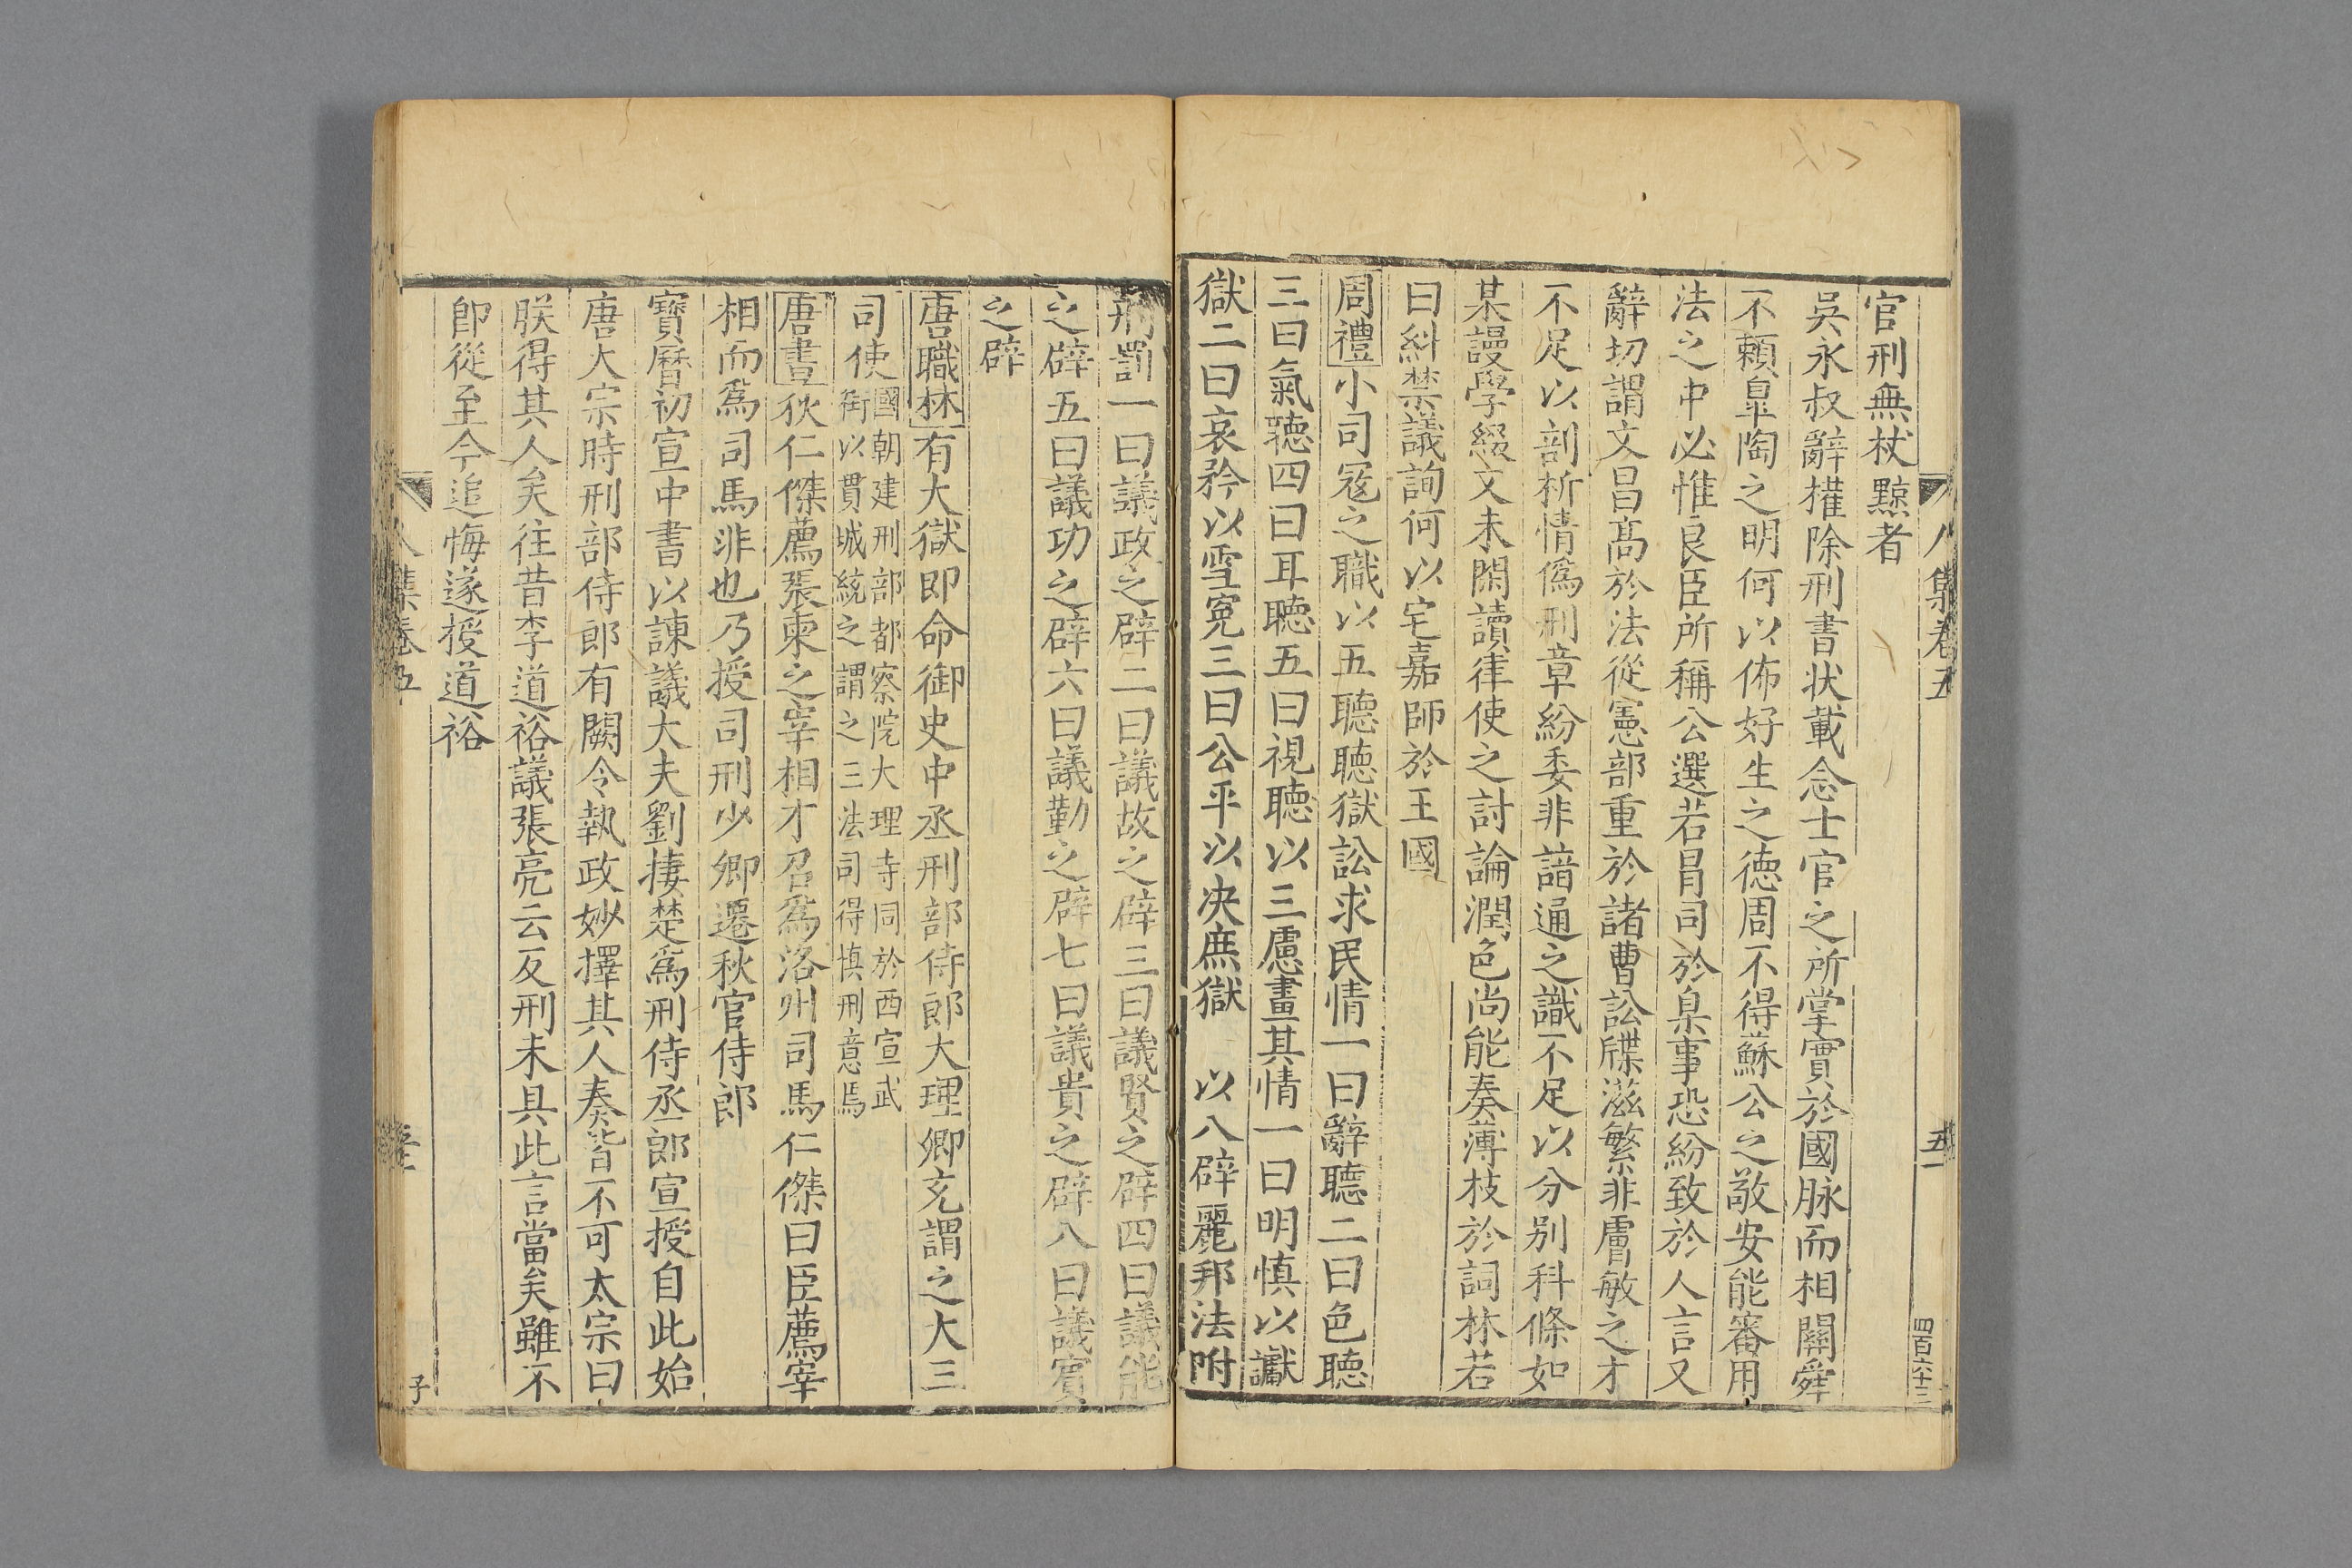 八集卷五
五一
四百六十三
官刑無杖黥者
吳永叔辭權除刑書状載念士官之所掌實於國脉而相關舜
不賴臯陶之明何以佈好生之德周不得蘇公之敬安能審用
法之中必惟良臣所稱公選若冐司於臬事恐紛致於人言又
辭切謂文昌髙於法從憲部重於諸曹訟牒滋繁非膚敏之才
不足以剖析情僞刑章紛委非諳通之識不足以分别科條如
某謾學綴文未閑讀律使之討論潤色尚能奏薄枝於詞林若
曰糾禁議詢何以宅嘉師於王國
周禮小司冦之職以五聽聽獄訟求民情一曰辭聽二曰色聽
三曰氣聽四曰耳聽五曰視聽以三慮畫其情一曰明慎以讞
獄二曰哀矜以雪寃三曰公平以决庶獄　以八辟麗邦法附
刑罰一曰議政之辟二曰議故之辟三曰議賢之辟四曰議能
之辟五曰議功之辟六曰議勤之辟七曰議貴之辟八曰議賓
之辟
唐職林有大獄即命御史中丞刑部侍郎大理卿充謂之大三
司使國朝建刑部都察院大理寺同於西宣武
街以貫城統之謂之三法司得慎刑意焉
唐書狄仁傑薦張柬之宰相才召爲洛州司馬仁傑曰臣薦宰
相而爲司馬非也乃授司刑少卿遷秋官侍郎
寶曆初宣中書以諫議大夫劉捿楚爲刑侍丞郎宣授自此始
唐大宗時刑部侍郎有闕令執政妙擇其人奏皆不可太宗曰
朕得其人矣往昔李道裕議張亮云反刑未具此言當矣雖不
卽從至今追悔遂授道裕
八集卷五
子